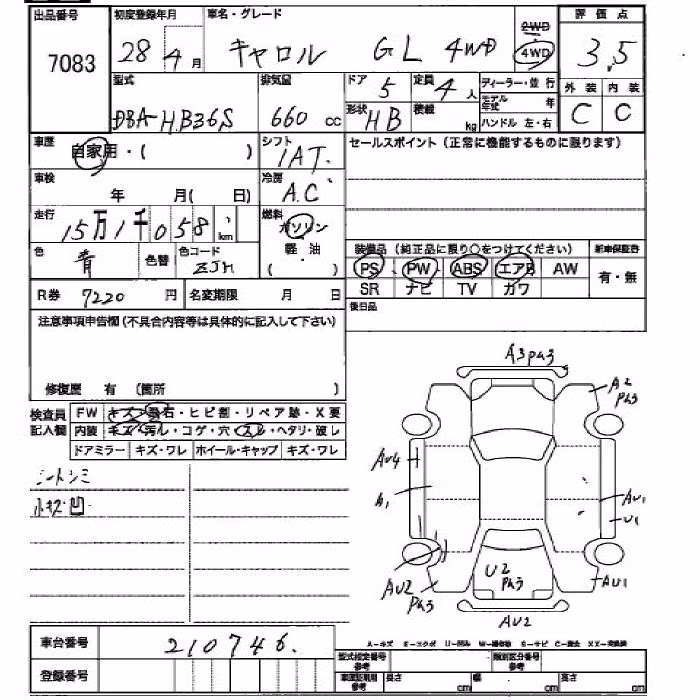 出品番号 初度登録年月 車名・グレード 2WD 評価点
7083 28 4月 キャロル GL 4WD 4WD 3.5
型式 排気量 ドア 定員 ディーラー・並行 外装 内装
DBA-HB36S 660 cc 5 4人 モデル年式 年 C C
形状 HB 積載 kg ハンドル 左・右
車歴 自家用・( ) シフト IAT. セールスポイント(正常に機能するものに限ります)
車検 年 月( 日) 冷房 A.C
走行 15万1千058 km 燃料 ガソリン
軽・油
( )
装備品(純正品に限り○をつけてください) 新車保証書
色 青 色替 色コード ZJH PS PW ABS エアB AW 有・無
SR ナビ TV カワ
R券 7220 円 名変期限 月 日 後日品
注意事項申告欄(不具合内容等は具体的に記入して下さい)
修復歴 有 (箇所 )
検査員記入欄 FW キズ・飛石・ヒビ割・リペア跡・X要
内装 キズ・汚ル・コゲ・穴・スレ・ヘタリ・破レ
ドアミラー キズ・ワレ ホイール・キャップ キズ・ワレ
シートシミ
小キズ凹
A3 PH3
A2
PH3
AU4
A1
AU1
U1
AU2
PH3
U2
PH3
AU1
AU2
A-キズ E-エクボ U-凹み W-補修跡 S-サビ C-腐食 XX-交換済
車台番号 210746.
型式指定番号 参考 類別区分番号 参考
登録番号 車庫証明用 参考 長さ cm 幅 cm 高さ cm